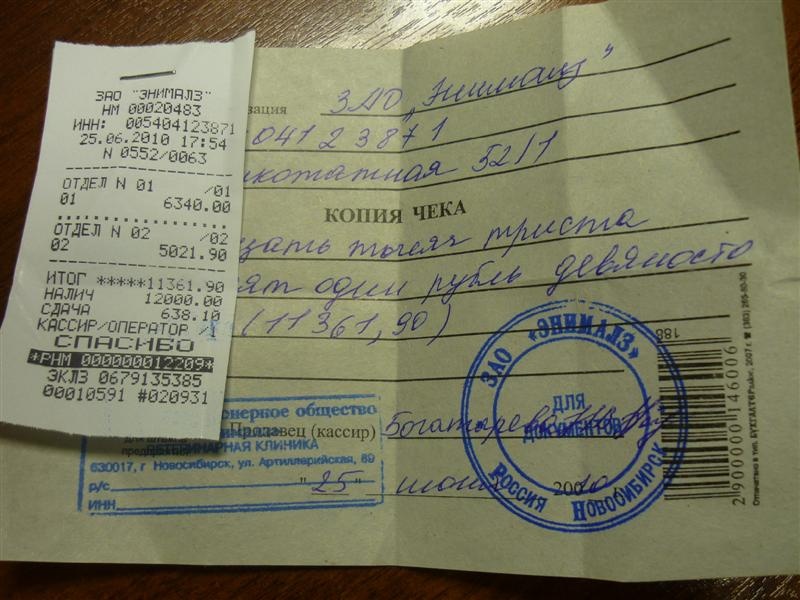 ЗАО "ЭНИМАЛЗ"
НМ 00020483
ИНН: 005404123871
25.06.2010 17:54
N 0552/0063
ОТДЕЛ N 01 /01
01 6340.00
ОТДЕЛ N 02 /02
02 5021.90
ИТОГ *****11361.90
НАЛИЧ 12000.00
СДАЧА 638.10
КАССИР/ОПЕРАТОР /1
СПАСИБО
*РНМ 000000012209*
ЭКЛЗ 0679135385
00010591 #020931
зация ЗАО "Энималз"
04123871
52/1
КОПИЯ ЧЕКА
цать тысяч триста
ят один рубль девяносто
(11361,90)
188
онерное общество
Продавец (кассир)
ВЕТЕРИНАРНАЯ КЛИНИКА
630017, г Новосибирск, ул. Артиллерийская, 89
р/с
ИНН
"25" июня 2010
ЗАО «ЭНИМАЛЗ»
ДЛЯ
ДОКУМЕНТОВ
РОССИЯ НОВОСИБИРСК
2900000146006